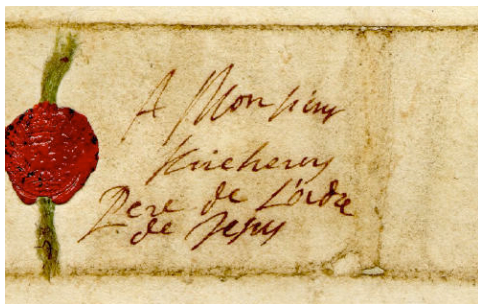 A Monsieur
Kircherus
Pere de L'ordre
de Jesus